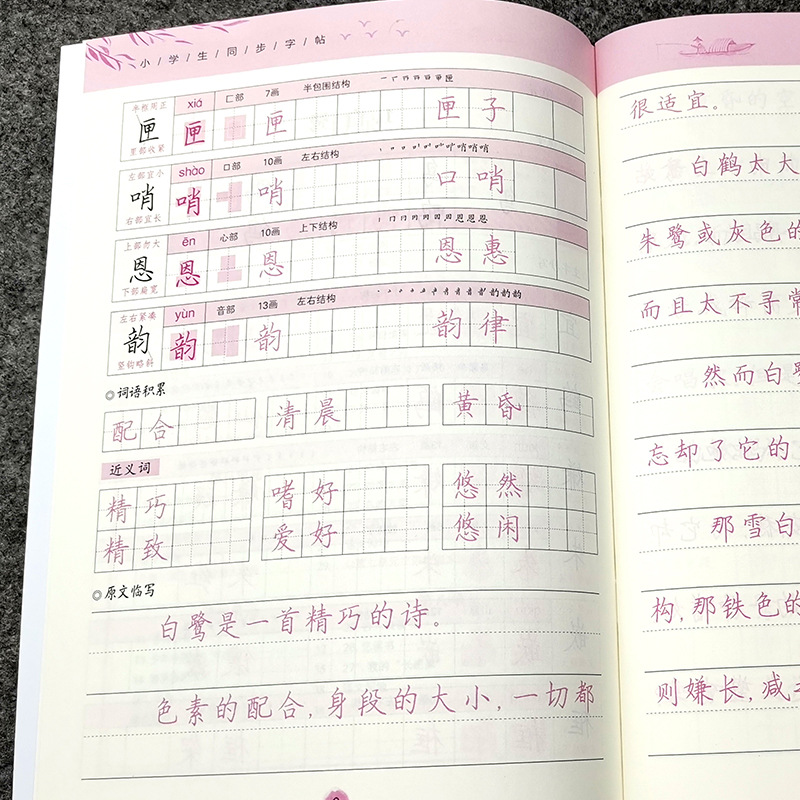 小/学/生/同/步/字/帖
半框周正 匣 里部收紧 xiá 匚部 7画 半包围结构
匣 匣 匣子
左部宜小 哨 右部宜长 shào 口部 10画 左右结构
哨 哨 口哨
上部勿大 恩 下部扁宽 ēn 心部 10画 上下结构
恩 恩 恩惠
左右紧凑 韵 竖钩略斜 yùn 音部 13画 左右结构
韵 韵 韵律
◎词语积累
配合 清晨 黄昏
近义词
精巧 嗜好 悠然
精致 爱好 悠闲
◎原文临写
白鹭是一首精巧的诗。
色素的配合,身段的大小,一切都
很适宜。
白鹤太大
朱鹭或灰色的
而且太不寻常
然而白鹭
忘却了它的
那雪白
构,那铁色的
则嫌长,减